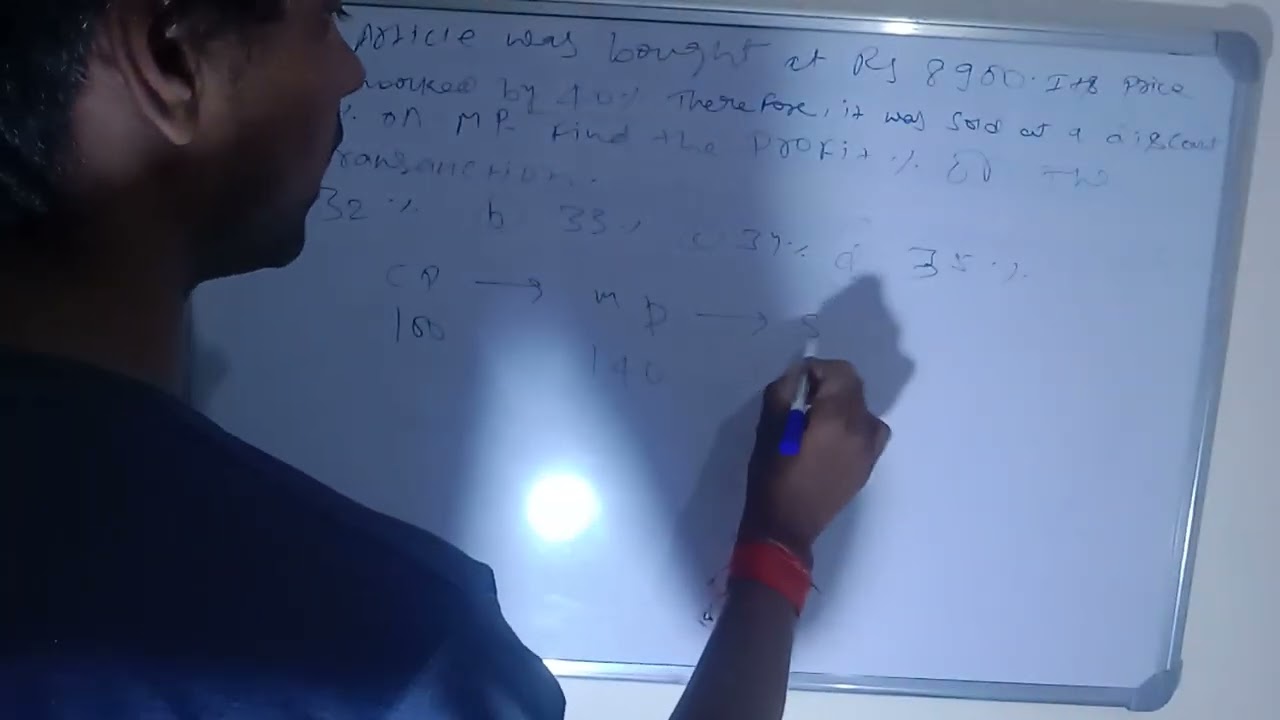 Article was bought at Rs 8950. Its Price
marked by 40% Therefore, it was sold at a discount
% on MP. Find the Profit % The
transanction.
32 % b 33 % c 34 % d 35 %
CP → MP → S
100 140